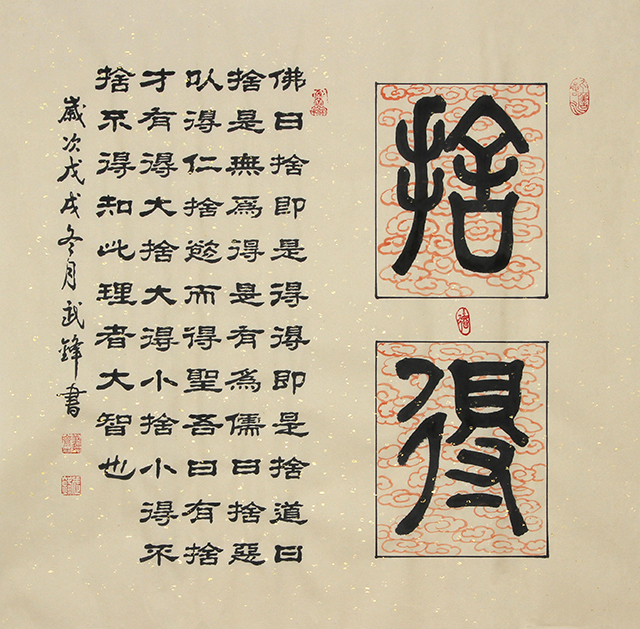 捨得
佛曰捨即是得得即是捨道曰
捨是無為得是有為儒曰捨惡
以得仁捨慾而得聖吾曰有捨
才有得大捨大得小捨小得不
捨不得知此理者大智也
歲次戊戌冬月武鋒書